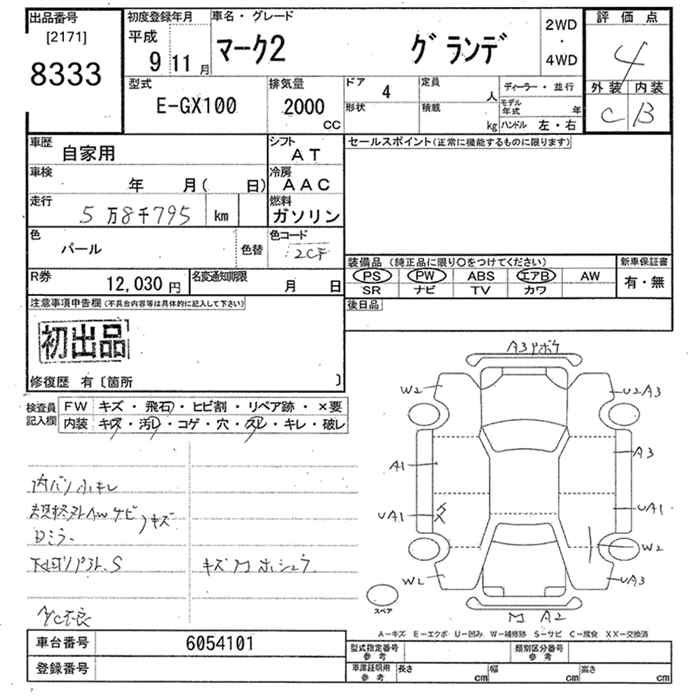 出品番号
[2171]
8333
初度登録年月
平成
9 11月
車名・グレード
マーク2 グランデ
2WD
・
4WD
評価点
4
外装 内装
C B
型式
E-GX100
排気量
2000
cc
ドア
4
定員
人
形状
積載
kg
ディーラー・並行
モデル年式 年
ハンドル 左・右
車歴
自家用
シフト
AT
セールスポイント(正常に機能するものに限ります)
車検
年 月( 日)
冷房
AAC
走行
5万8千795 km
燃料
ガソリン
色
パール
色替
色コード
2CF
R券
12,030 円
名変通知期限
月 日
装備品(純正品に限り〇をつけてください)
PS PW ABS エアB AW
SR ナビ TV カワ
新車保証書
有・無
後日品
注意事項申告欄(不具合内容等は具体的に記入して下さい)
初出品
修復歴 有〔箇所 〕
検査員記入欄
FW キズ・飛石・ヒビ割・リペア跡・×要
内装 キズ・汚レ・コゲ・穴・スレ・キレ・破レ
W2
U2 A3
A1
A3
UA1
UA1
W2
W2
UA3
M A2
スペア
キズ
Dミラー
キズMホシュウ
A/C不良
A-キズ E-エクボ U-凹み W-補修跡 S-サビ C-腐食 XX-交換済
車台番号
6054101
登録番号
型式指定番号
参考
類別区分番号
参考
車庫証明用
参考
長さ cm
幅 cm
高さ cm